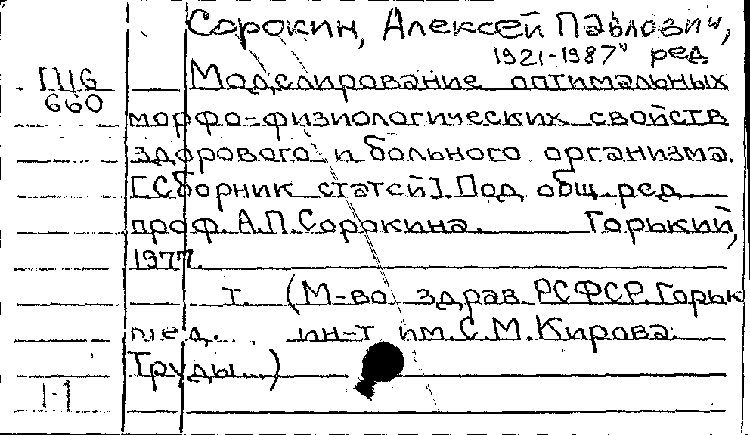 Сорокин, Алексей Павлович,
1921-1987, ред
П16 Моделирование оптимальных
660 морфо-физиологических свойств
здорового и больного организма.
[Сборник статей]. Под общ. ред
проф. А.П. Сорокина. Горький,
1977.
т. (М-во здрав. РСФСР. Горьк
мед. ин-т им. С.М. Кирова.
Труды. )
1-1